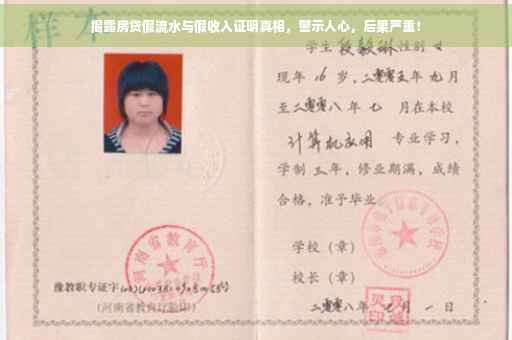 揭露房贷假流水与假收入证明真相，警示人心，后果严重！
样本
学生 段毅琳 性别 女
现年 16 岁，二零零五年 九月
至二零零八年 七 月在本校
计算机应用 专业学习，
学制 三 年，修业期满，成绩
合格，准予毕业
学校（章）
校长（章）
二零零八年 七 月 一 日
河南省教育厅
豫教职专证字
（河南省教育厅验印）